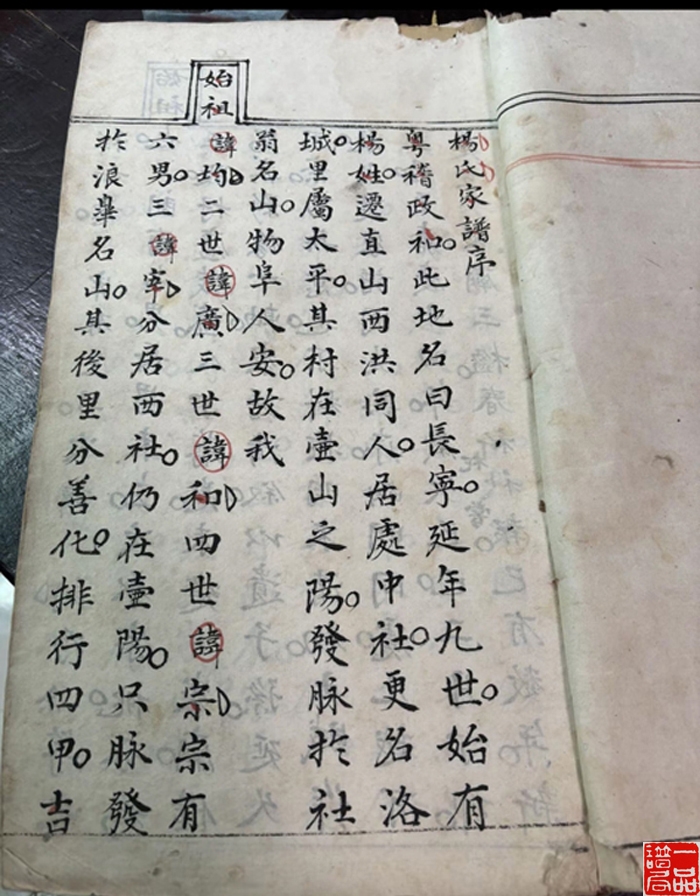 楊氏家譜序
粵稽政和此地名曰長寧延年九世始有
楊姓遷直山西洪同人居處中社更名洛
城里屬太平其村在壺山之陽發脉扵社
翁名山物阜人安故我
始祖
諱圴二世諱廣三世諱和四世諱宗宗有
六男三諱宰分居西社仍在壺陽只脉發
扵浪𦤎名山其後里分善化排行四甲吉
一品譜局